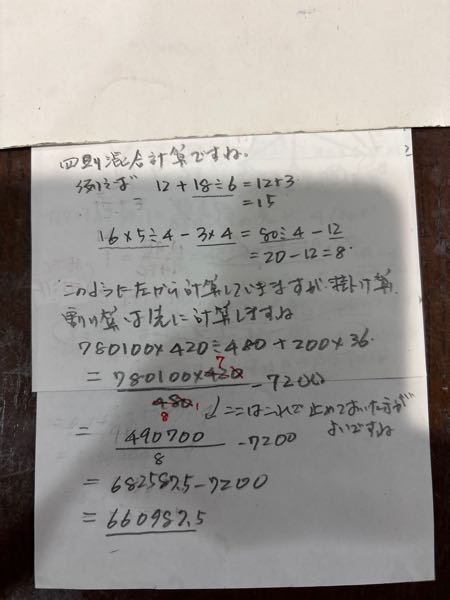 四則混合計算ですね。
例えば 12+18÷6=12+3
=15
16×5÷4-3×4=80÷4-12
=20-12=8
このように左から計算していきますが掛け算、
割り算は先に計算しますね
780100×420÷480+200×36.
= 780100×420 7 / 480 8 -7200
↓ ここはこれで止めておいた方が
よいですね
= 5490700 / 8 -7200
= 682587.5-7200
= 660987.5